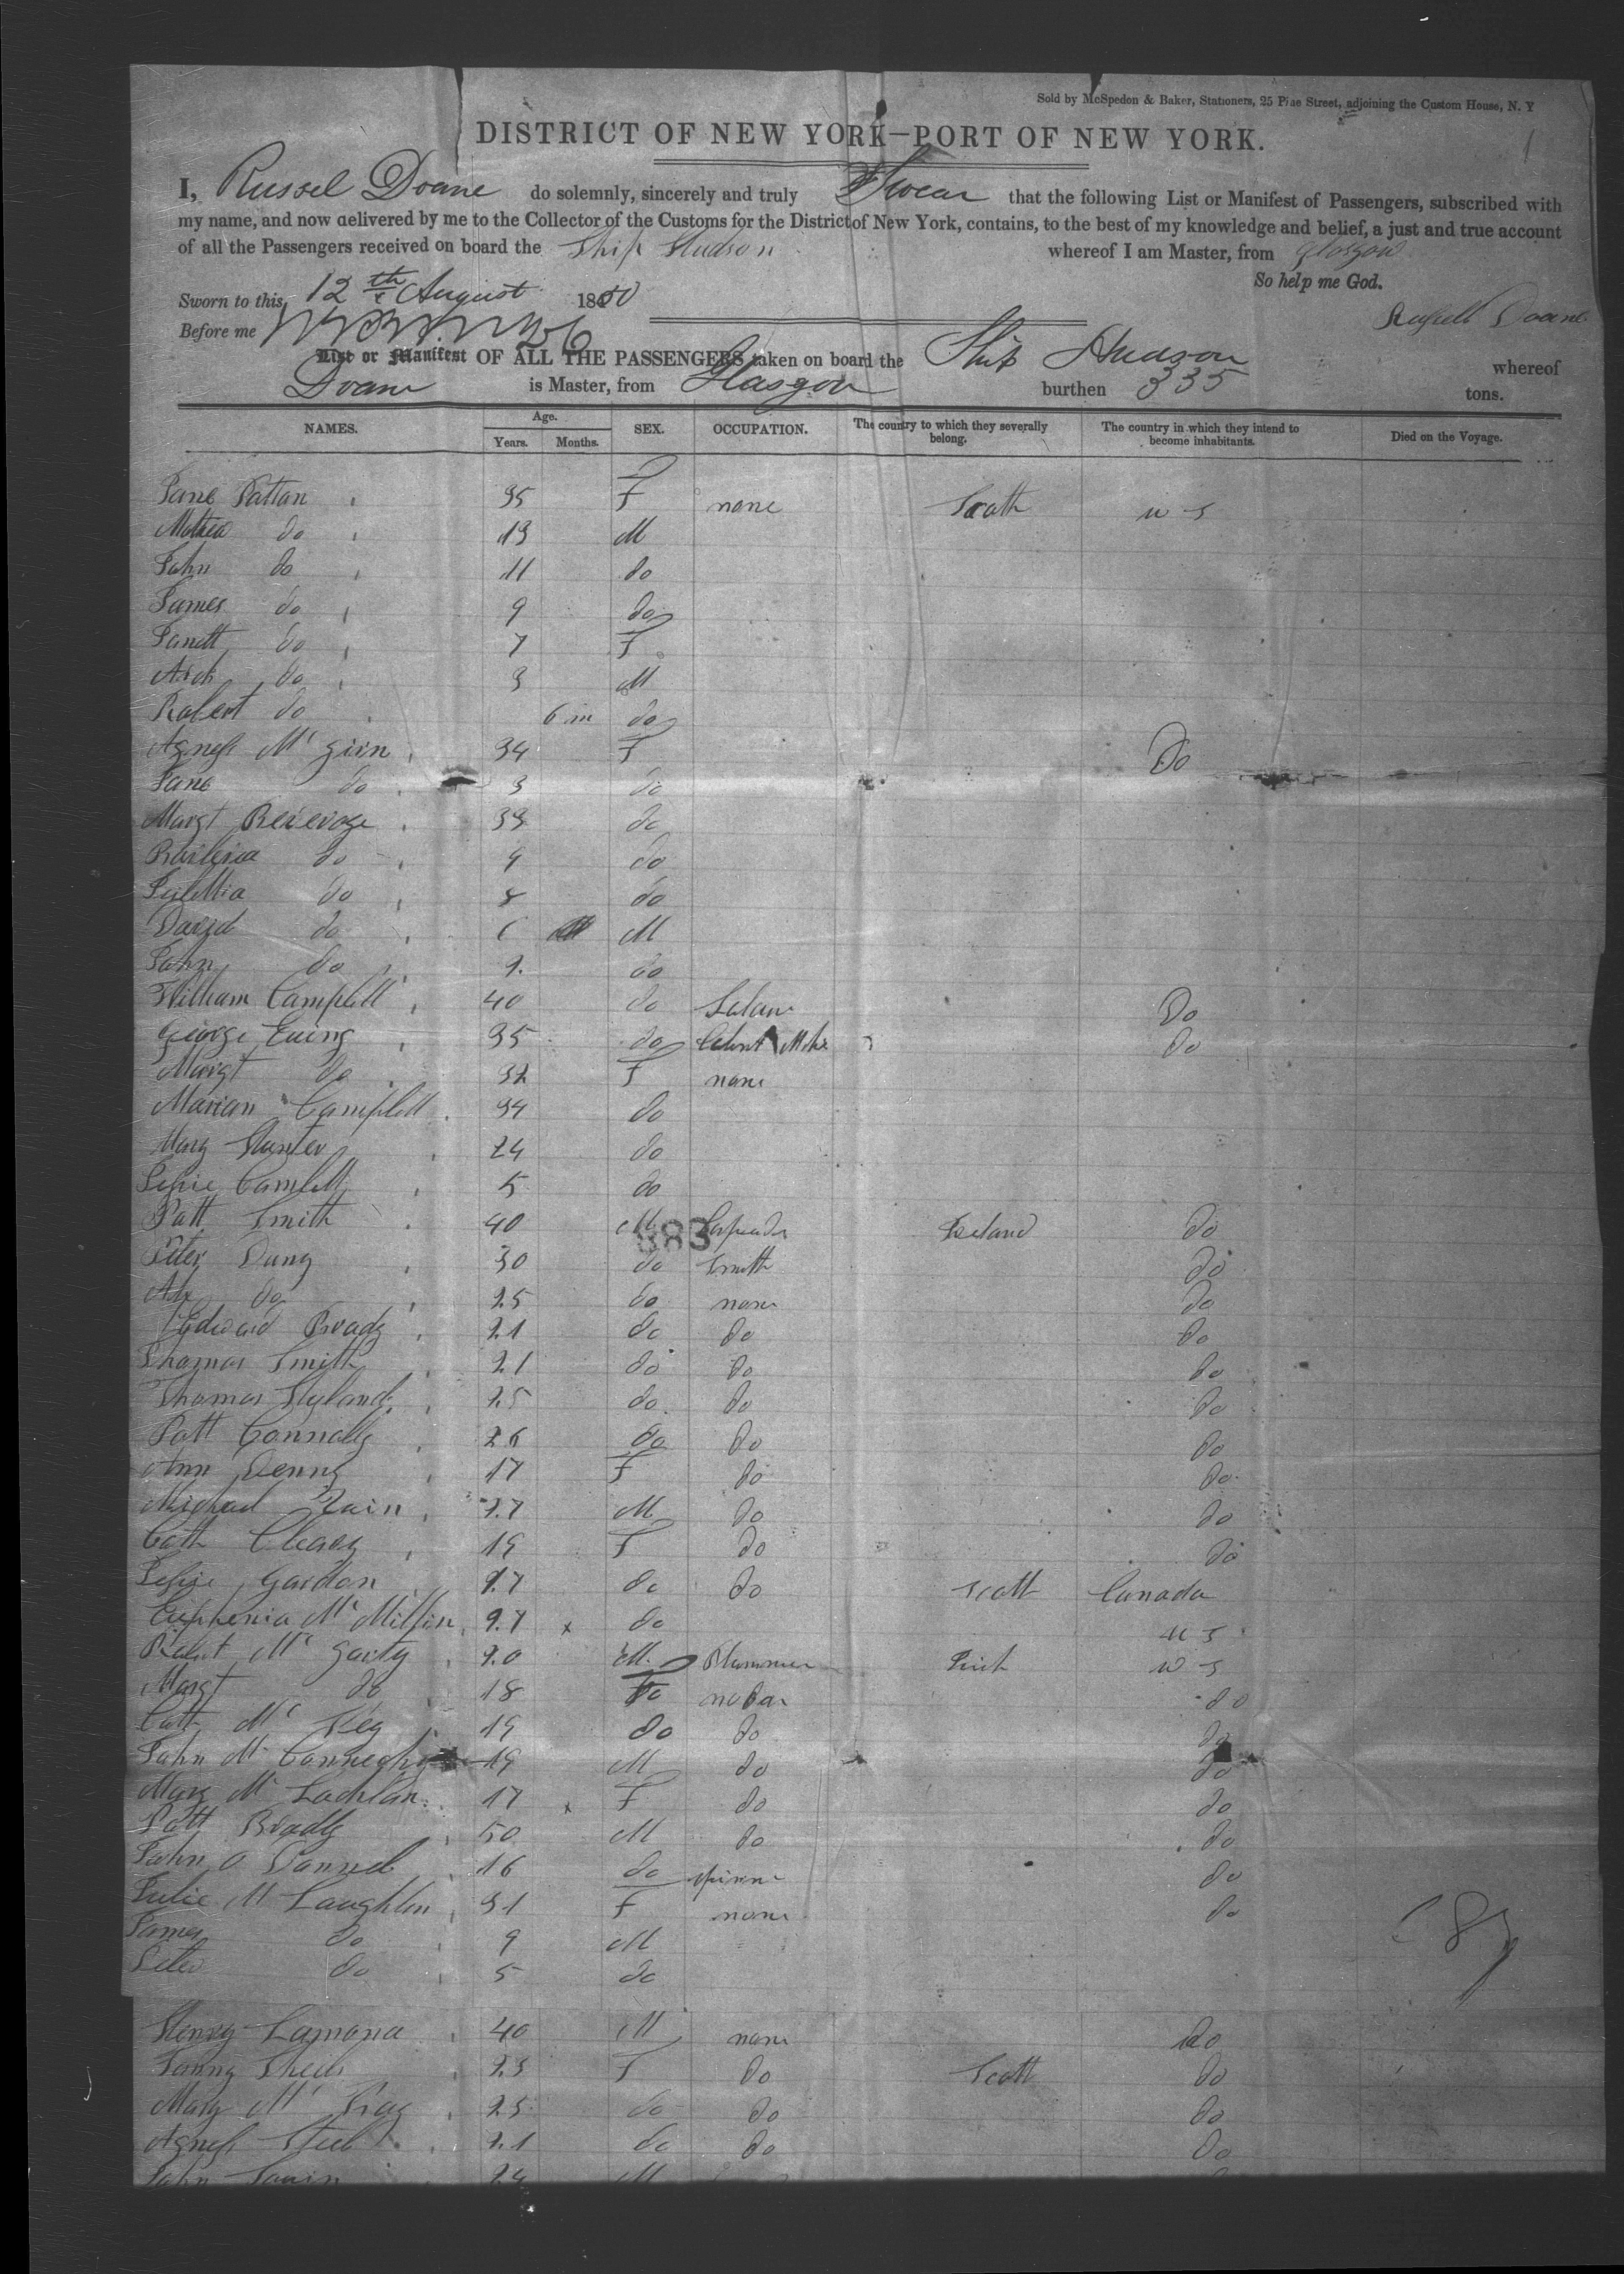 Sold by McSpedon & Baker, Stationers, 25 Pine Street, adjoining the Custom House, N. Y
1
DISTRICT OF NEW YORK—PORT OF NEW YORK.
I, Russel Doane do solemnly, sincerely and truly Swear that the following List or Manifest of Passengers, subscribed with
my name, and now delivered by me to the Collector of the Customs for the District of New York, contains, to the best of my knowledge and belief, a just and true account
of all the Passengers received on board the Ship Hudson whereof I am Master, from Glasgow
So help me God.
Sworn to this 12th August 1850
Russell Doane
Before me
List or Manifest OF ALL THE PASSENGERS taken on board the Ship Hudson whereof
Doane is Master, from Glasgow burthen 335 tons.
NAMES. Age. Years. Months. SEX. OCCUPATION. The country to which they severally belong. The country in which they intend to become inhabitants. Died on the Voyage.
Jane Pattan 35 F none Scoth U S
Mathew do 13 M
John do 11 do
James do 9 do
Janett do 7 F
Arch do 3 M
Robert do 6 m do
Agness Mc Girn 34 F Do
Jane do 3 do
Margt Beverage 33 do
do 9 do
do 8 do
David do 6 M
John do 1 do
William Campbell 40 do Do
George Ewing 35 do Do
Margt do 32 F none
Marian Campbell 34 do
Mary Hunter 24 do
Jessie Cambell 5 do
Patt Smith 40 M Ireland do
883
Peter Dung 30 do Smith do
do 25 do none do
Edward Brady 21 do do do
Thomas Smith 21 do do do
Thomas Hyland 25 do do do
Patt Connolly 26 do do do
Ann Denny 17 F do do
Michael 27 M do do
Cath Cleary 19 F do do
Jessie Gordon 27 do do Scott Canada
Euphenia Mc Millin 27 x do U S
Robert Mc Garty 20 M Plummer Irish U S
Margt do 18 F do
Cath Mc 19 do do do
John Mc 19 M do do
Mary Mc Lachlan 17 x F do do
Patt Bradly 50 M do do
John O Donnel 16 do do
Julie Mc Laughlin 31 F none do
James do 9 M
Peter do 5 do
Henry Lamona 40 M none do
Fanny Sheils 23 F do Scott do
Mary Mc 25 do do do
Agness Steel 21 do do do
John 24 M